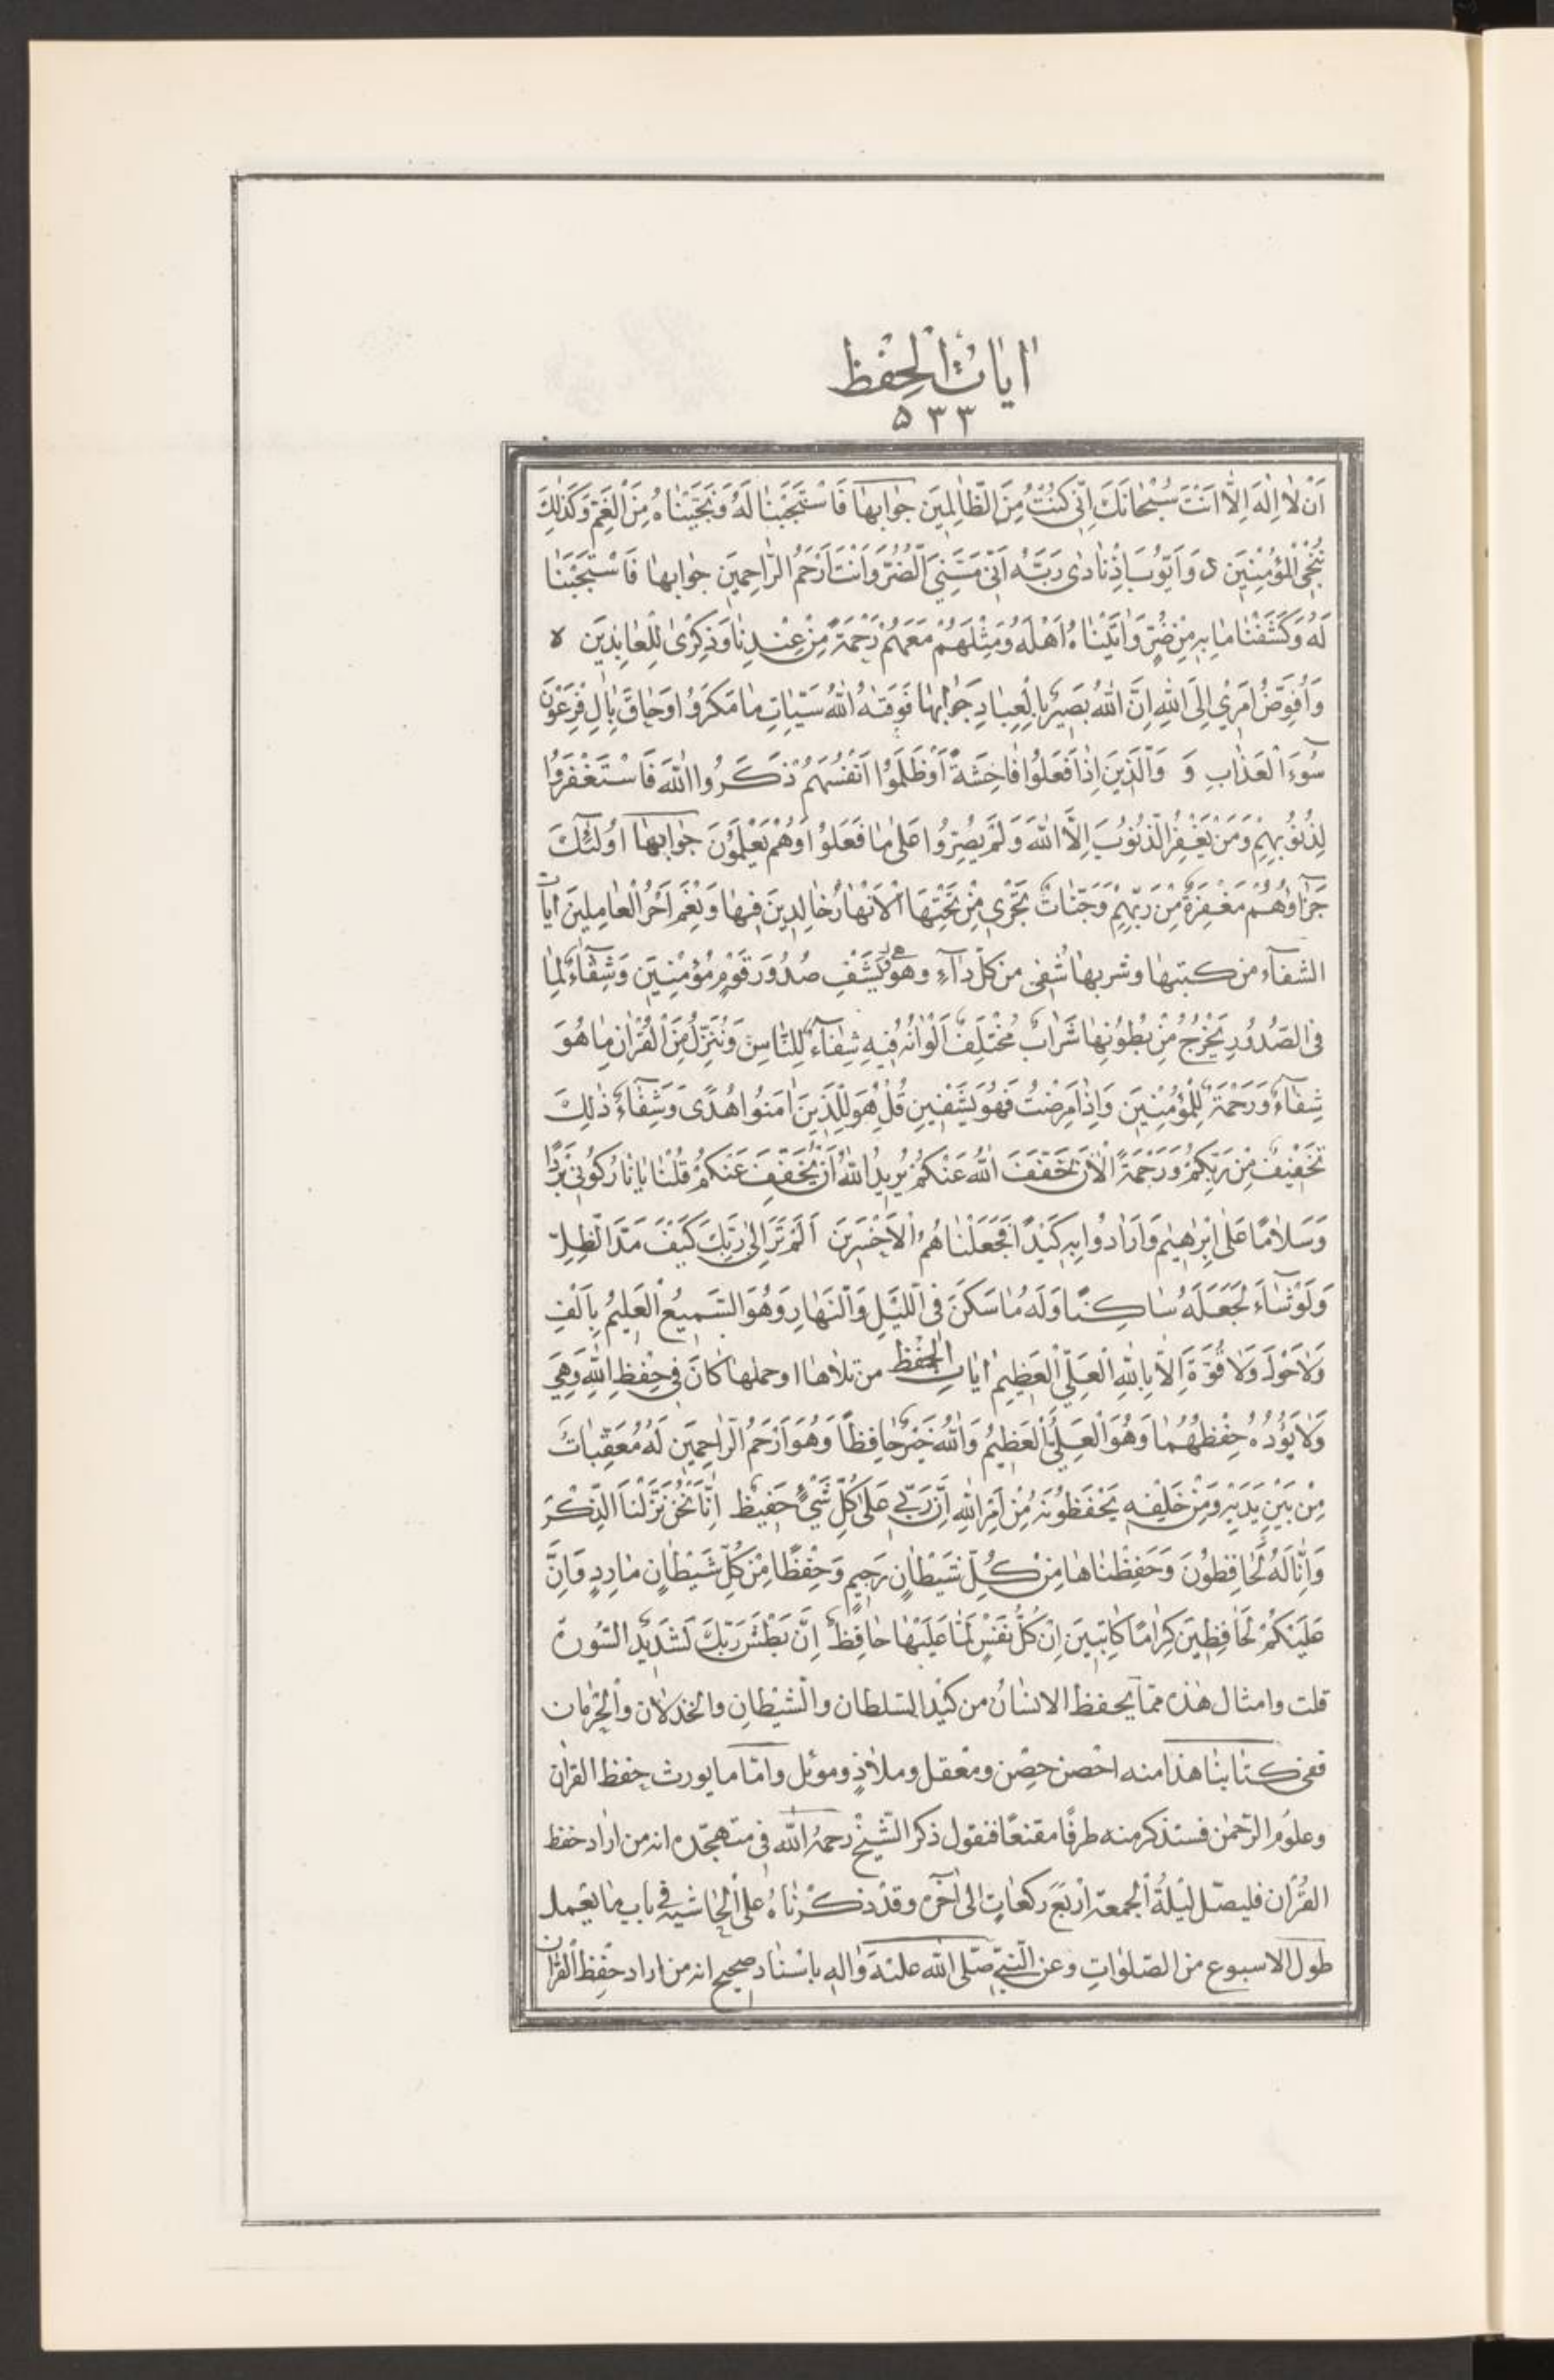 اٰيَاتُ الْحِفْظِ
۵۳۳
اَنْ لٰا اِلٰهَ اِلَّا اَنْتَ سُبْحٰانَكَ اِنّى كُنْتُ مِنَ الظّٰالِمِيَن جوٰابها فَاسْتَجَبْنٰا لَهُ وَنَجَّيْنٰاهُ مِنَ الْغَمِّ وَكَذٰلِكَ
نُنْجِى الْمُؤْمِنِيَن د وَاَيّوُبَ اِذْ نٰادىٰ رَبَّهُ اَنّى مَسَّنِىَ الضُّرُّ وَاَنْتَ اَرْحَمُ الرّٰاحِميَن جوٰابها فَاسْتَجَبْنٰا
لَهُ وَكَشَفْنٰا مٰا بِهِ مِنْ ضُرٍّ وَاٰتَيْنٰاهُ اَهْلَهُ وَمِثْلَهُمْ مَعَهُمْ رَحْمَةً مِنْ عِنْدِنٰا وَذِكْرىٰ لِلْعٰابِديَن ه
وَاُفَوِّضُ اَمْري اِلَى اللّٰهِ اِنَّ اللّٰهَ بَصيٌر بِالْعِبٰادِ جَوٰابها فَوَقٰهُ اللّٰهُ سَيِّاٰتِ مٰا مَكَرُوا وَحٰاقَ بِاٰلِ فِرْعَوْنَ
سُوءُ الْعَذٰابِ وَ وَالَّذيَن اِذٰا فَعَلُوا فٰاحِشَةً اَوْ ظَلَمُوا اَنْفُسَهُمْ ذَكَرُوا اللّٰهَ فَاسْتَغْفَرُوا
لِذُنُوبِهِمْ وَمَنْ يَغْفِرُ الذُّنُوبَ اِلَّا اللّٰهُ وَلَمْ يُصِرُّوا عَلىٰ مٰا فَعَلُوا وَهُمْ يَعْلَمُونَ جوٰابها اُولٰئِكَ
جَزٰاؤهُمْ مَغْفِرَةٌ مِنْ رَبِّهِمْ وَجَنّٰاتٌ تَجْرى مِنْ تَحْتِهَا الْاَنْهٰارُ خٰالِديَن فيهٰا وَنِعْمَ اَجْرُ الْعٰامِليَن اٰيات
الشفآء من كتبها وشربها شُفى من كلّ دٰآءٍ وهى وَيَشْفِ صُدُورَ قَوْمٍ مُؤْمِنيَن وَشِفٰآءٌ لِمٰا
فى الصُّدُورِ يَخْرُجُ مِنْ بُطُونِهٰا شَرٰابٌ مُخْتَلِفٌ اَلْوٰانُهُ فيهِ شِفٰاءٌ لِلنّٰاسِ وَنُنَزِّلُ مِنَ الْقُرْاٰنِ مٰا هُوَ
شِفٰآءٌ وَرَحْمَةٌ لِلْمُؤْمِنيَن وَاِذٰا مَرِضْتُ فَهُوَ يَشْفيِن قُلْ هُوَ لِلَّذيَن اٰمَنُوا هُدًى وَشِفٰآءٌ ذٰلِكَ
تَخْفيفٌ مِنْ رَبِّكُمْ وَرَحْمَةٌ اَلْاٰنَ خَفَّفَ اللّٰهُ عَنْكُمْ يُريدُ اللّٰهُ اَنْ يُخَفِّفَ عَنْكُمْ قُلْنٰا يٰا نٰارُ كُونى بَرْدًا
وَسَلٰامًا عَلىٰ اِبْرٰهيمَ وَاَرٰادُوا بِهِ كَيْدًا فَجَعَلْنٰاهُمُ الْاَخْسَريَن اَلَمْ تَرَ اِلىٰ رَبِّكَ كَيْفَ مَدَّ الظِّلَّ
وَلَوْ شٰآءَ لَجَعَلَهُ سٰاكِنًا وَلَهُ مٰا سَكَنَ فى اللَّيْلِ وَالنَّهٰارِ وَهُوَ السَّميعُ الْعَليمُ بِاَلْفِ
وَلٰا حَوْلَ وَلٰا قُوَّةَ اِلّٰا بِاللّٰهِ الْعَلِىِّ الْعَظيمِ اٰيٰاتِ الْحِفْظِ من تلٰاها اوحملها كٰانَ فى حِفْظِ اللّٰهِ وَهِىَ
وَلٰا يَؤُدُهُ حِفْظُهُمٰا وَهُوَ الْعَلِىُّ الْعَظيمُ وَاللّٰهُ خَيْرٌ حٰافِظًا وَهُوَ اَرْحَمُ الرّٰاحِميَن لَهُ مُعَقِّبٰاتٌ
مِنْ بَيْنِ يَدَيْهِ وَمِنْ خَلْفِهِ يَحْفَظُونَهُ مِنْ اَمْرِ اللّٰهِ اِنَّ رَبّى عَلىٰ كُلِّ شَىْءٍ حَفيظٌ اِنّٰا نَحْنُ نَزَّلْنَا الذِّكْرَ
وَاِنّٰا لَهُ لَحٰافِظُونَ وَحَفِظْنٰاهٰا مِنْ كُلِّ شَيْطٰانٍ رَجيمٍ وَحِفْظًا مِنْ كُلِّ شَيْطٰانٍ مٰارِدٍ وَاِنَّ
عَلَيْكُمْ لَحٰافِظيَن كِرٰامًا كٰاتِبيَن اِنْ كُلُّ نَفْسٍ لَمّٰا عَلَيْهٰا حٰافِظٌ اِنَّ بَطْشَ رَبِّكَ لَشَديدٌ السّورة
قلت وامثال هٰذه ممّا يحفظ الانسٰان من كيْد السّلطان والشّيْطٰان والخذلٰان والْحِرْمٰان
ففى كتٰابنٰا هذٰا منه احْصن حِصْن ومعْقل وملٰاذٍ وموئل وامّٰا ما يورث حفظ القرٰان
وعلوم الرّحمٰن فسنذكر منه طرفًا مقنعًا فنقول ذكر الشّيْخ رحمهُ اللّٰه فى متهجّده انه من اراد حفظ
القُرْان فليصلّ ليْلةُ الْجمعة ارْبَعَ ركعٰاتٍ الٰى اٰخره وقدْ ذكرْنٰاهُ علىٰ الْحٰاشية فى باب مٰا يعْمل
طول الاسبوع من الصّلوٰاتِ وعن النّبىّ صلّى اللّٰه عليْه وٰاله باسْنٰاد صحيح انه من اراد حفْظ الْقرٰان